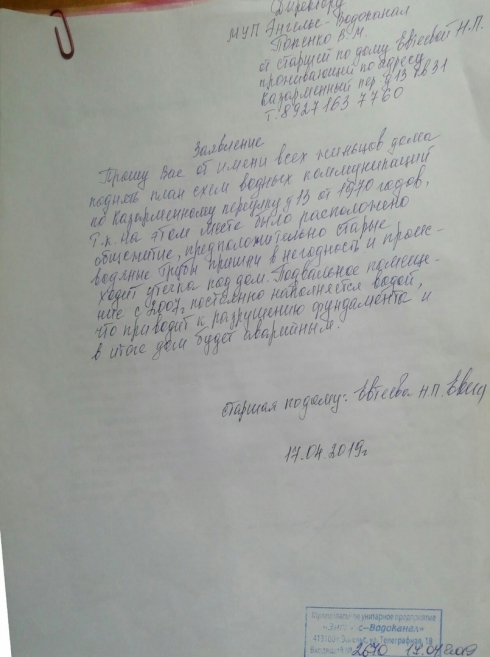 Директору
МУП Энгельс-Водоканал
Попенко В.М.
от старшей по дому Евтеевой Н.П.
проживающей по адресу
Казарменный пер д 13 кв 31
т. 8927 163 7760
Заявление
Прошу Вас от имени всех жильцов дома
поднять план схем водных коммуникаций
по Казарменному переулку д 13 от 1970 годов,
т.к. на этом месте было расположено
общежитие, предположительно старые
водяные трубы пришли в негодность и проис-
ходит утечка под дом. Подвальное помеще-
ние с 2007г. постоянно наполняется водой,
что приводит к разрушению фундамента и
в итоге дом будет аварийным.
старшая по дому: Евтеева Н.П.
17.04.2019г
Муниципальное унитарное предприятие
«Энгельс-Водоканал»
г. Энгельс, ул. Телеграфная, 18
Входящий № 2670 17.04.2019